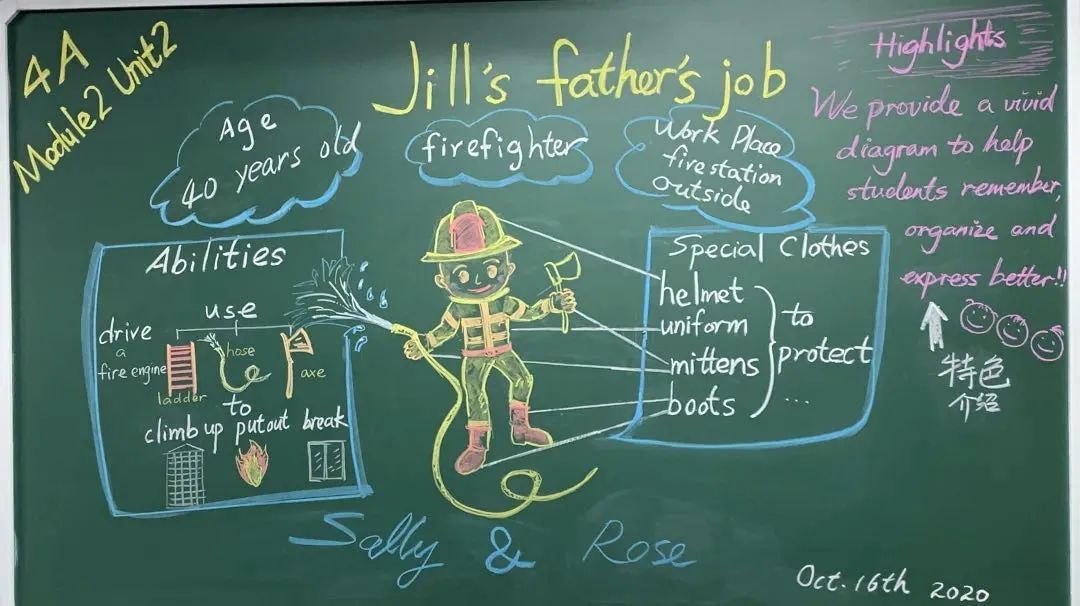 4A
Module 2 Unit 2
Jill's father's job
Age
40 years old
firefighter
Work Place
fire station
outside
Highlights
We provide a vivid
diagram to help
students remember,
organize and
express better!!
特色
介绍
Abilities
use
drive
a
fire engine
ladder
hose
axe
to
climb up put out break
Special Clothes
helmet
uniform
mittens
boots
to
protect
...
Sally & Rose
Oct. 16th 2020